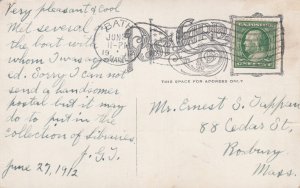 Very pleasant & cool
Met several
the boat with
whom I was acqua
id. Sorry I can not
send a handsomer
postal but it may
do to put in the
Collection of libraries.
J. G. T.
June 27, 1912
BATH
JUN
-PM
19
Post Card
THIS SPACE FOR ADDRESS ONLY.
Mr. Ernest S. Tappan
88 Cedar St,
Roxbury
Mass.